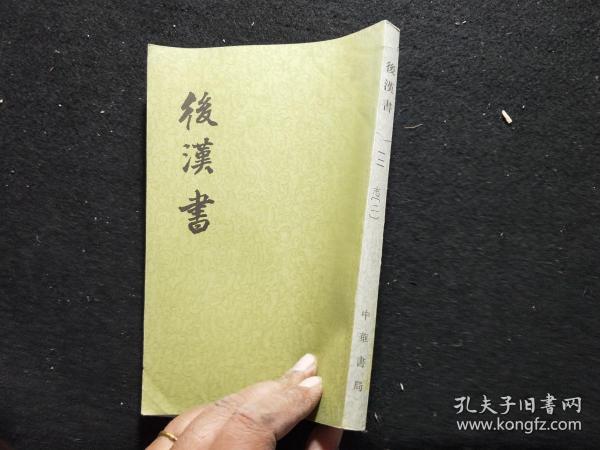 後漢書
後漢書
一二
志(二)
中華書局
孔夫子旧書网
www.kongfz.com